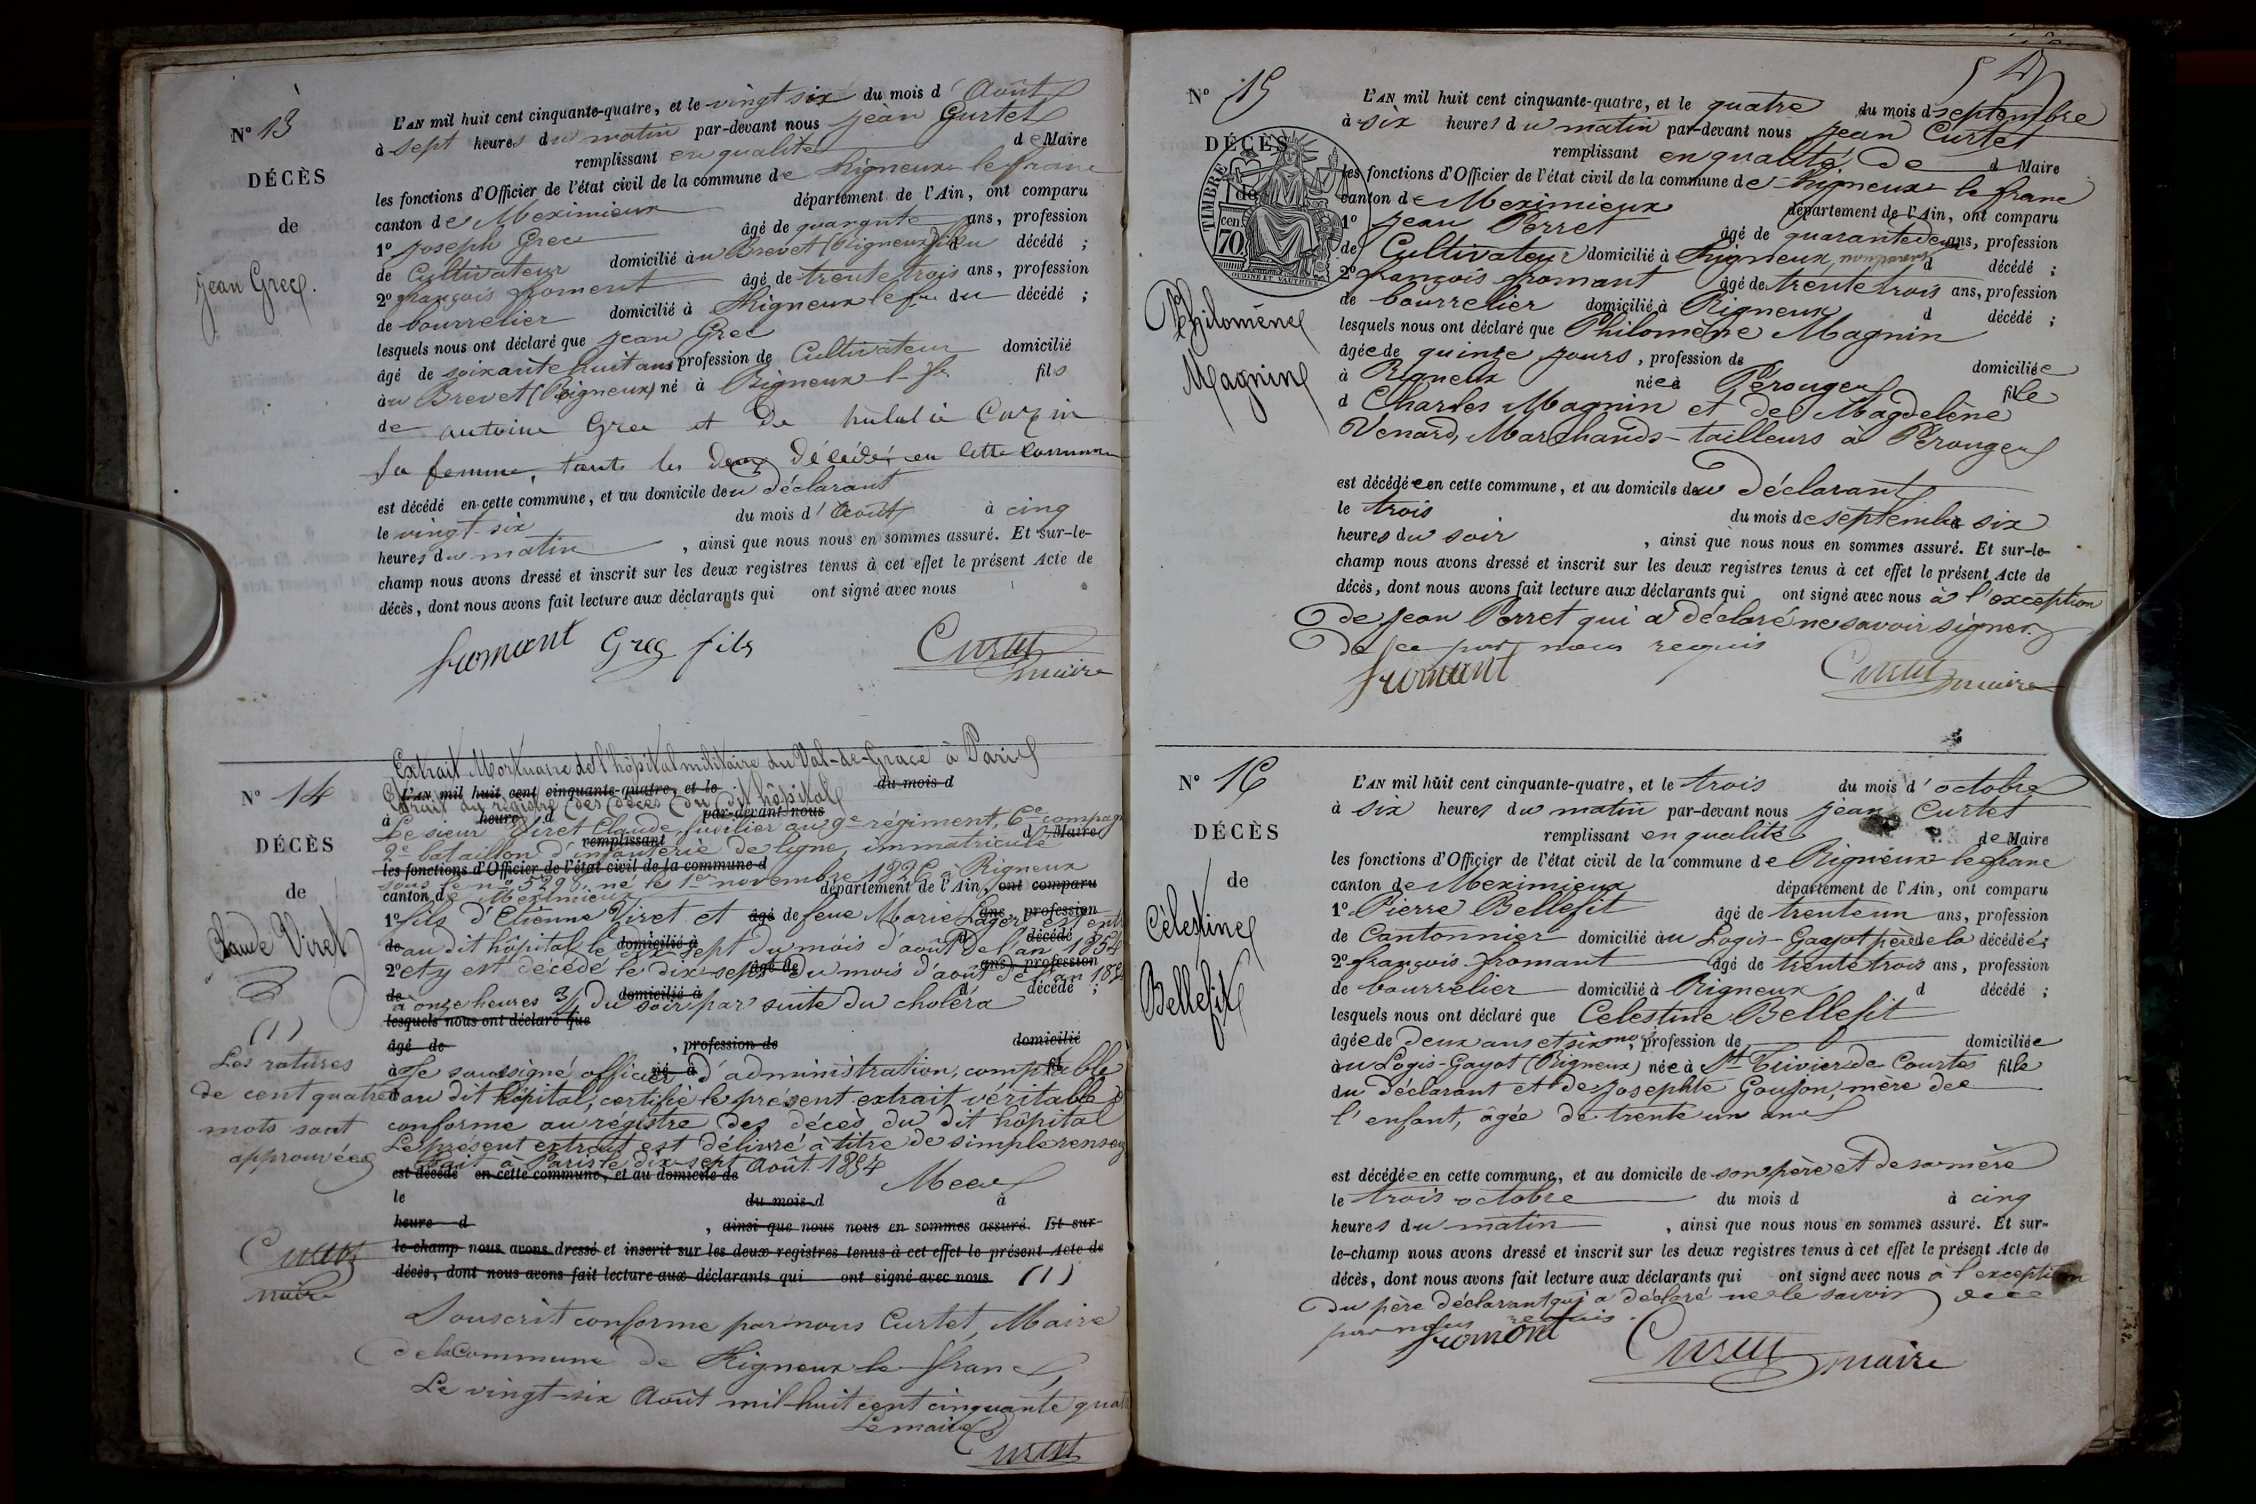 N° 13
DÉCÈS
de
Jean Grec.
L'AN mil huit cent cinquante-quatre, et le vingt six du mois d'Août
à sept heures du matin par-devant nous Jean Curtet
remplissant en qualité de Maire
les fonctions d'Officier de l'état civil de la commune de Rigneux le franc
canton de Meximieux département de l'Ain, ont comparu
1° Joseph Grec âgé de quarante ans, profession
de Cultivateur domicilié au Brevet (Rigneux) du décédé ;
2° françois fromont âgé de trente trois ans, profession
de bourrelier domicilié à Rigneux le fr. du décédé ;
lesquels nous ont déclaré que Jean Grec
âgé de soixante huit ans profession de Cultivateur domicilié
au Brevet (Rigneux) né à Rigneux l- fr. fils
de antoine Grec et de
sa femme, tants les deux décédés en cette commune
est décédé en cette commune, et au domicile deu déclarant
le vingt-six du mois d'Août à cinq
heures du matin , ainsi que nous nous en sommes assuré. Et sur-le-
champ nous avons dressé et inscrit sur les deux registres tenus à cet effet le présent Acte de
décès, dont nous avons fait lecture aux déclarants qui ont signé avec nous
fromont Grec fils Curtet
maire
N° 14
DÉCÈS
de
Claude Viret
(1)
Les ratures
de cent quatre
mots sont
approuvées
Curtet
maire
Extrait Mortuaire de l'hôpital militaire du Val-de-Grace à Paris
L'AN mil huit cent cinquante-quatre, et le du mois d
Extrait du registre des décès du dit hôpital
à heure d par-devant nous
Le sieur Viret Claude, fusilier au 9e régiment, 6e compag
remplissant d Maire
2e bataillon d'infanterie de ligne, immatriculé
les fonctions d'Officier de l'état civil de la commune d
sous le n° 5298, né le 1er novembre 1826 à Rigneux
canton de Meximieux département de l'Ain, ont comparu
1° fils d'Etienne Viret et âgé de feue Marie Lager ans, profession
de au dit hôpital le domicilié à dix sept du mois d'août de l'an 1854 décédé
2° et y est décédé le dix-sept âgé de du mois d'août de l'an 1854 ans, profession
de à onze heures 3/4 du domicilié à soir par suite du choléra d décédé ;
lesquels nous ont déclaré que
âgé de , profession de domicilié
à Je soussigné officier né à d'administration, comptable fil
au dit hôpital, certifie le présent extrait véritable &
conforme au régistre des décès du dit hôpital
Le présent extrait est délivré à titre de simple renseig
Fait à Paris le dix-sept Août 1854
est décédé en cette commune, et au domicile de
le du mois d à
heure d , ainsi que nous nous en sommes assuré. Et sur-
le-champ nous avons dressé et inscrit sur les deux registres tenus à cet effet le présent Acte de
décès, dont nous avons fait lecture aux déclarants qui ont signé avec nous (1)
Souscrit conforme par nous Curtet, Maire
de la Commune de Rigneux le franc,
Le vingt-six Août mil-huit cent cinquante quat
Le maire
Curtet
54
N° 15
DÉCÈS
de
TIMBRE
cen.
70
OUDINÉ ET VAUTHIER
Philomène
Magnin
L'AN mil huit cent cinquante-quatre, et le quatre du mois d septembre
à six heures du matin par-devant nous Jean Curtet
remplissant en qualité de d Maire
les fonctions d'Officier de l'état civil de la commune de Rigneux le franc
canton de Meximieux département de l'Ain, ont comparu
1° Jean Perret âgé de quarante deux ans, profession
de Cultivateur domicilié à Rigneux, non parent d décédé ;
2° françois fromant âgé de trente trois ans, profession
de bourrelier domicilié à Rigneux d décédé ;
lesquels nous ont déclaré que Philomène Magnin
âgée de quinze jours, profession de domiciliée
à Rigneux née à Pérouges fille
d Charles Magnin et de Magdelène
Venard, Marchands-tailleurs à Pérouges
est décédée en cette commune, et au domicile deu déclarant
le trois du mois de septembre six
heures du soir , ainsi que nous nous en sommes assuré. Et sur-le-
champ nous avons dressé et inscrit sur les deux registres tenus à cet effet le présent Acte de
décès, dont nous avons fait lecture aux déclarants qui ont signé avec nous à l'exception
de Jean Perret qui a déclaré ne savoir signer.
de ce par nous requis
fromont Curtet maire
N° 16
DÉCÈS
de
Célestine
Bellefit
L'AN mil huit cent cinquante-quatre, et le trois du mois d'octobre
à six heures du matin par-devant nous Jean Curtet
remplissant en qualité de Maire
les fonctions d'Officier de l'état civil de la commune de Rigneux le franc
canton de Meximieux département de l'Ain, ont comparu
1° Pierre Bellefit âgé de trente un ans, profession
de Cantonnier domicilié au Logis-Gayot père de la décédée ;
2° françois fromant âgé de trente trois ans, profession
de bourrelier domicilié à Rigneux d décédé ;
lesquels nous ont déclaré que Celestine Bellefit
âgée de deux ans et six mo, profession de domiciliée
au Logis-Gayot (Rigneux) née à St Trivier de Courtes fille
du déclarant et de Josephte Goujon, mère de
l'enfant, âgée de trente un ans
est décédée en cette commune, et au domicile de son père et de sa mère
le trois octobre du mois d à cinq
heures du matin , ainsi que nous nous en sommes assuré. Et sur-
le-champ nous avons dressé et inscrit sur les deux registres tenus à cet effet le présent Acte de
décès, dont nous avons fait lecture aux déclarants qui ont signé avec nous à l'exception
du père déclarant qui a déclaré ne le savoir de ce
par nous requis.
fromont Curtet maire